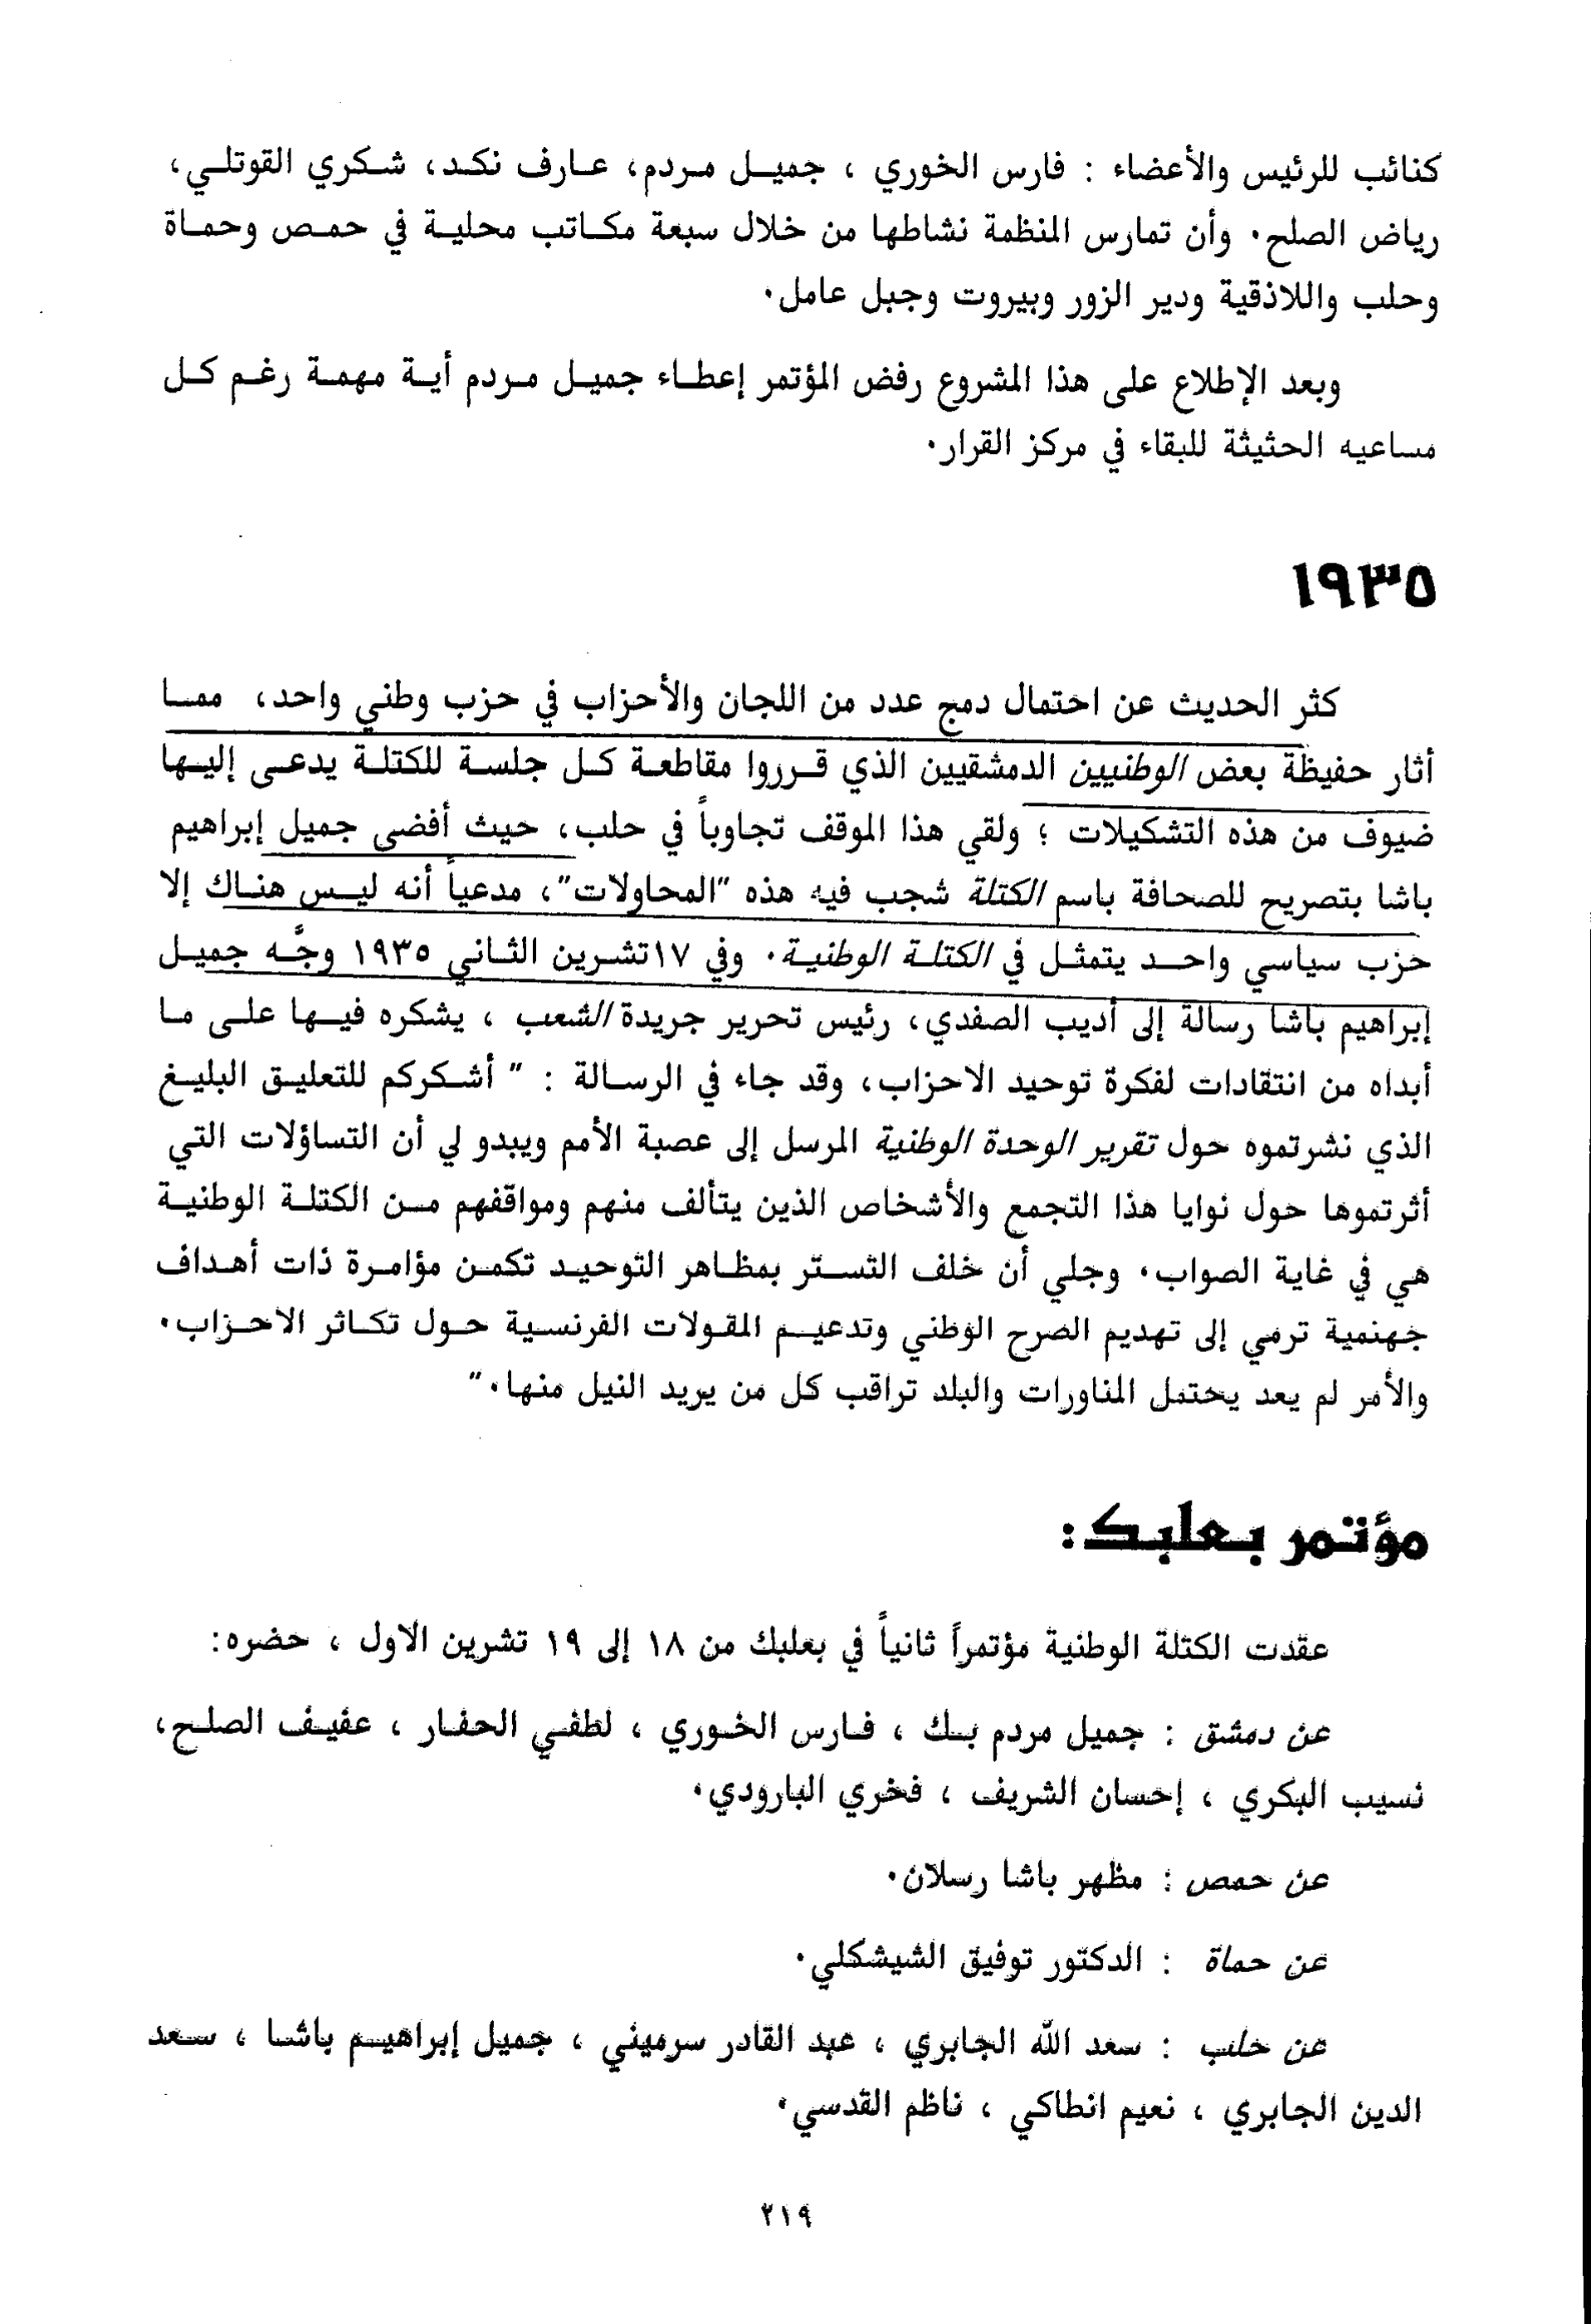 كنائب للرئيس والأعضاء : فارس الخوري ، جميل مردم، عارف نكد، شكري القوتلي،
رياض الصلح. وأن تمارس المنظمة نشاطها من خلال سبعة مكاتب محلية في حمص وحماة
وحلب واللاذقية ودير الزور وبيروت وجبل عامل.
وبعد الإطلاع على هذا المشروع رفض المؤتمر إعطاء جميل مردم أية مهمة رغم كل
مساعيه الحثيثة للبقاء في مركز القرار.
١٩٣٥
كثر الحديث عن احتمال دمج عدد من اللجان والأحزاب في حزب وطني واحد، مما
أثار حفيظة بعض الوطنيين الدمشقيين الذي قرروا مقاطعة كل جلسة للكتلة يدعى إليها
ضيوف من هذه التشكيلات ؛ ولقي هذا الموقف تجاوباً في حلب، حيث أفضى جميل إبراهيم
باشا بتصريح للصحافة باسم الكتلة شجب فيه هذه "المحاولات"، مدعياً أنه ليس هناك إلا
حزب سياسي واحد يتمثل في الكتلة الوطنية. وفي ١٧تشرين الثاني ١٩٣٥ وجَّه جميل
إبراهيم باشا رسالة إلى أديب الصفدي، رئيس تحرير جريدة الشعب ، يشكره فيها على ما
أبداه من انتقادات لفكرة توحيد الاحزاب، وقد جاء في الرسالة : " أشكركم للتعليق البليغ
الذي نشرتموه حول تقرير الوحدة الوطنية المرسل إلى عصبة الأمم ويبدو لي أن التساؤلات التي
أثرتموها حول نوايا هذا التجمع والأشخاص الذين يتألف منهم ومواقفهم من الكتلة الوطنية
هي في غاية الصواب. وجلي أن خلف التستر بمظاهر التوحيد تكمن مؤامرة ذات أهداف
جهنمية ترمي إلى تهديم الصرح الوطني وتدعيم المقولات الفرنسية حول تكاثر الاحزاب.
والأمر لم يعد يحتمل المناورات والبلد تراقب كل من يريد النيل منها."
مؤتمر بعلبك :
عقدت الكتلة الوطنية مؤتمراً ثانياً في بعلبك من ١٨ إلى ١٩ تشرين الاول ، حضره:
عن دمشق : جميل مردم بك ، فارس الخوري ، لطفي الحفار ، عفيف الصلح،
نسيب البكري ، إحسان الشريف ، فخري البارودي.
عن حمص : مظهر باشا رسلان.
عن حماة : الدكتور توفيق الشيشكلي.
عن حلب : سعد الله الجابري ، عبد القادر سرميني ، جميل إبراهيم باشا ، سعد
الدين الجابري ، نعيم انطاكي ، ناظم القدسي.
٢١٩